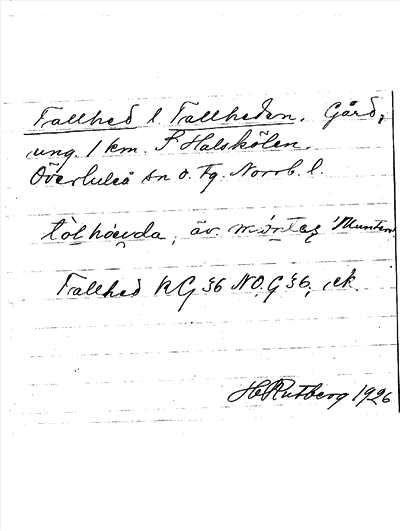 Tallhed l Tallheden. Gård,
ung. 1 km. S Halskölen.
Överluleå sn o. tg. Norrb. l.
tòlhòeda, äv. móntaʒ 'Munten'
Tallhed RG 36 NO. G 36, ek.
H Rutberg 1926